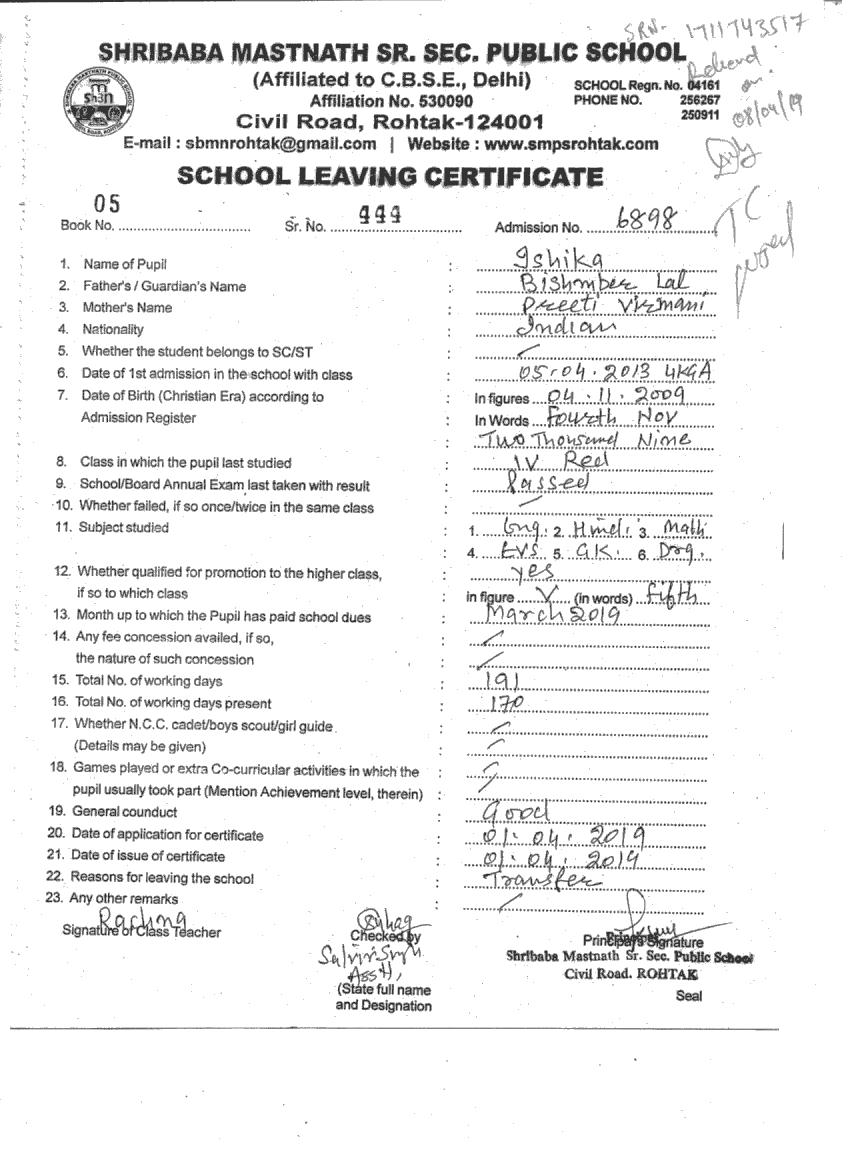 SRN- 1711743517
SHRIBABA MASTNATH SR. SEC. PUBLIC SCHOOL
(Affiliated to C.B.S.E., Delhi)
Affiliation No. 530090
SCHOOL Regn. No. 04161
PHONE NO. 256267
250911
on
08/04/19
Civil Road, Rohtak-124001
E-mail : sbmnrohtak@gmail.com | Website : www.smpsrohtak.com
SCHOOL LEAVING CERTIFICATE
TC
Book No. 05 Sr. No. 444 Admission No. 6898
1. Name of Pupil : Ishika
2. Father's / Guardian's Name : Bishmber Lal
3. Mother's Name : Preeti Virmani
4. Nationality : Indian
5. Whether the student belongs to SC/ST :
6. Date of 1st admission in the school with class : 05.04.2013 UKGA
7. Date of Birth (Christian Era) according to : In figures 04.11.2009
Admission Register : In Words Fourth Nov
: Two Thousand Nine
8. Class in which the pupil last studied : IV Red
9. School/Board Annual Exam last taken with result : Passed
10. Whether failed, if so once/twice in the same class :
11. Subject studied : 1. Eng. 2. Hindi 3. Math
4. EVS 5. G.K. 6. Drg.
12. Whether qualified for promotion to the higher class, : yes
if so to which class : in figure V (in words) Fifth
13. Month up to which the Pupil has paid school dues : March 2019
14. Any fee concession availed, if so, :
the nature of such concession :
15. Total No. of working days : 191
16. Total No. of working days present : 170
17. Whether N.C.C. cadet/boys scout/girl guide :
(Details may be given) :
18. Games played or extra Co-curricular activities in which the :
pupil usually took part (Mention Achievement level, therein) :
19. General counduct : Good
20. Date of application for certificate : 01.04.2019
21. Date of issue of certificate : 01.04.2019
22. Reasons for leaving the school : Transfer
23. Any other remarks :
Rachna
Signature of Class Teacher
Checked by
Asstt,
(State full name
and Designation
Principal's Signature
Shribaba Mastnath Sr. Sec. Public School
Civil Road. ROHTAK
Seal